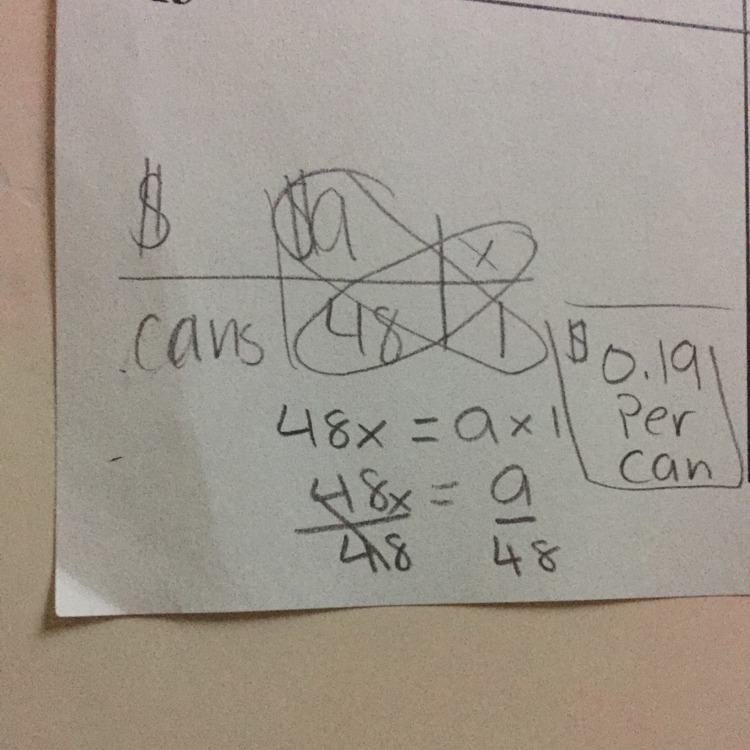 $ $9 x
cans 48 1
48x = 9 x 1
48x = 9
48 48
$ 0.19
Per
can